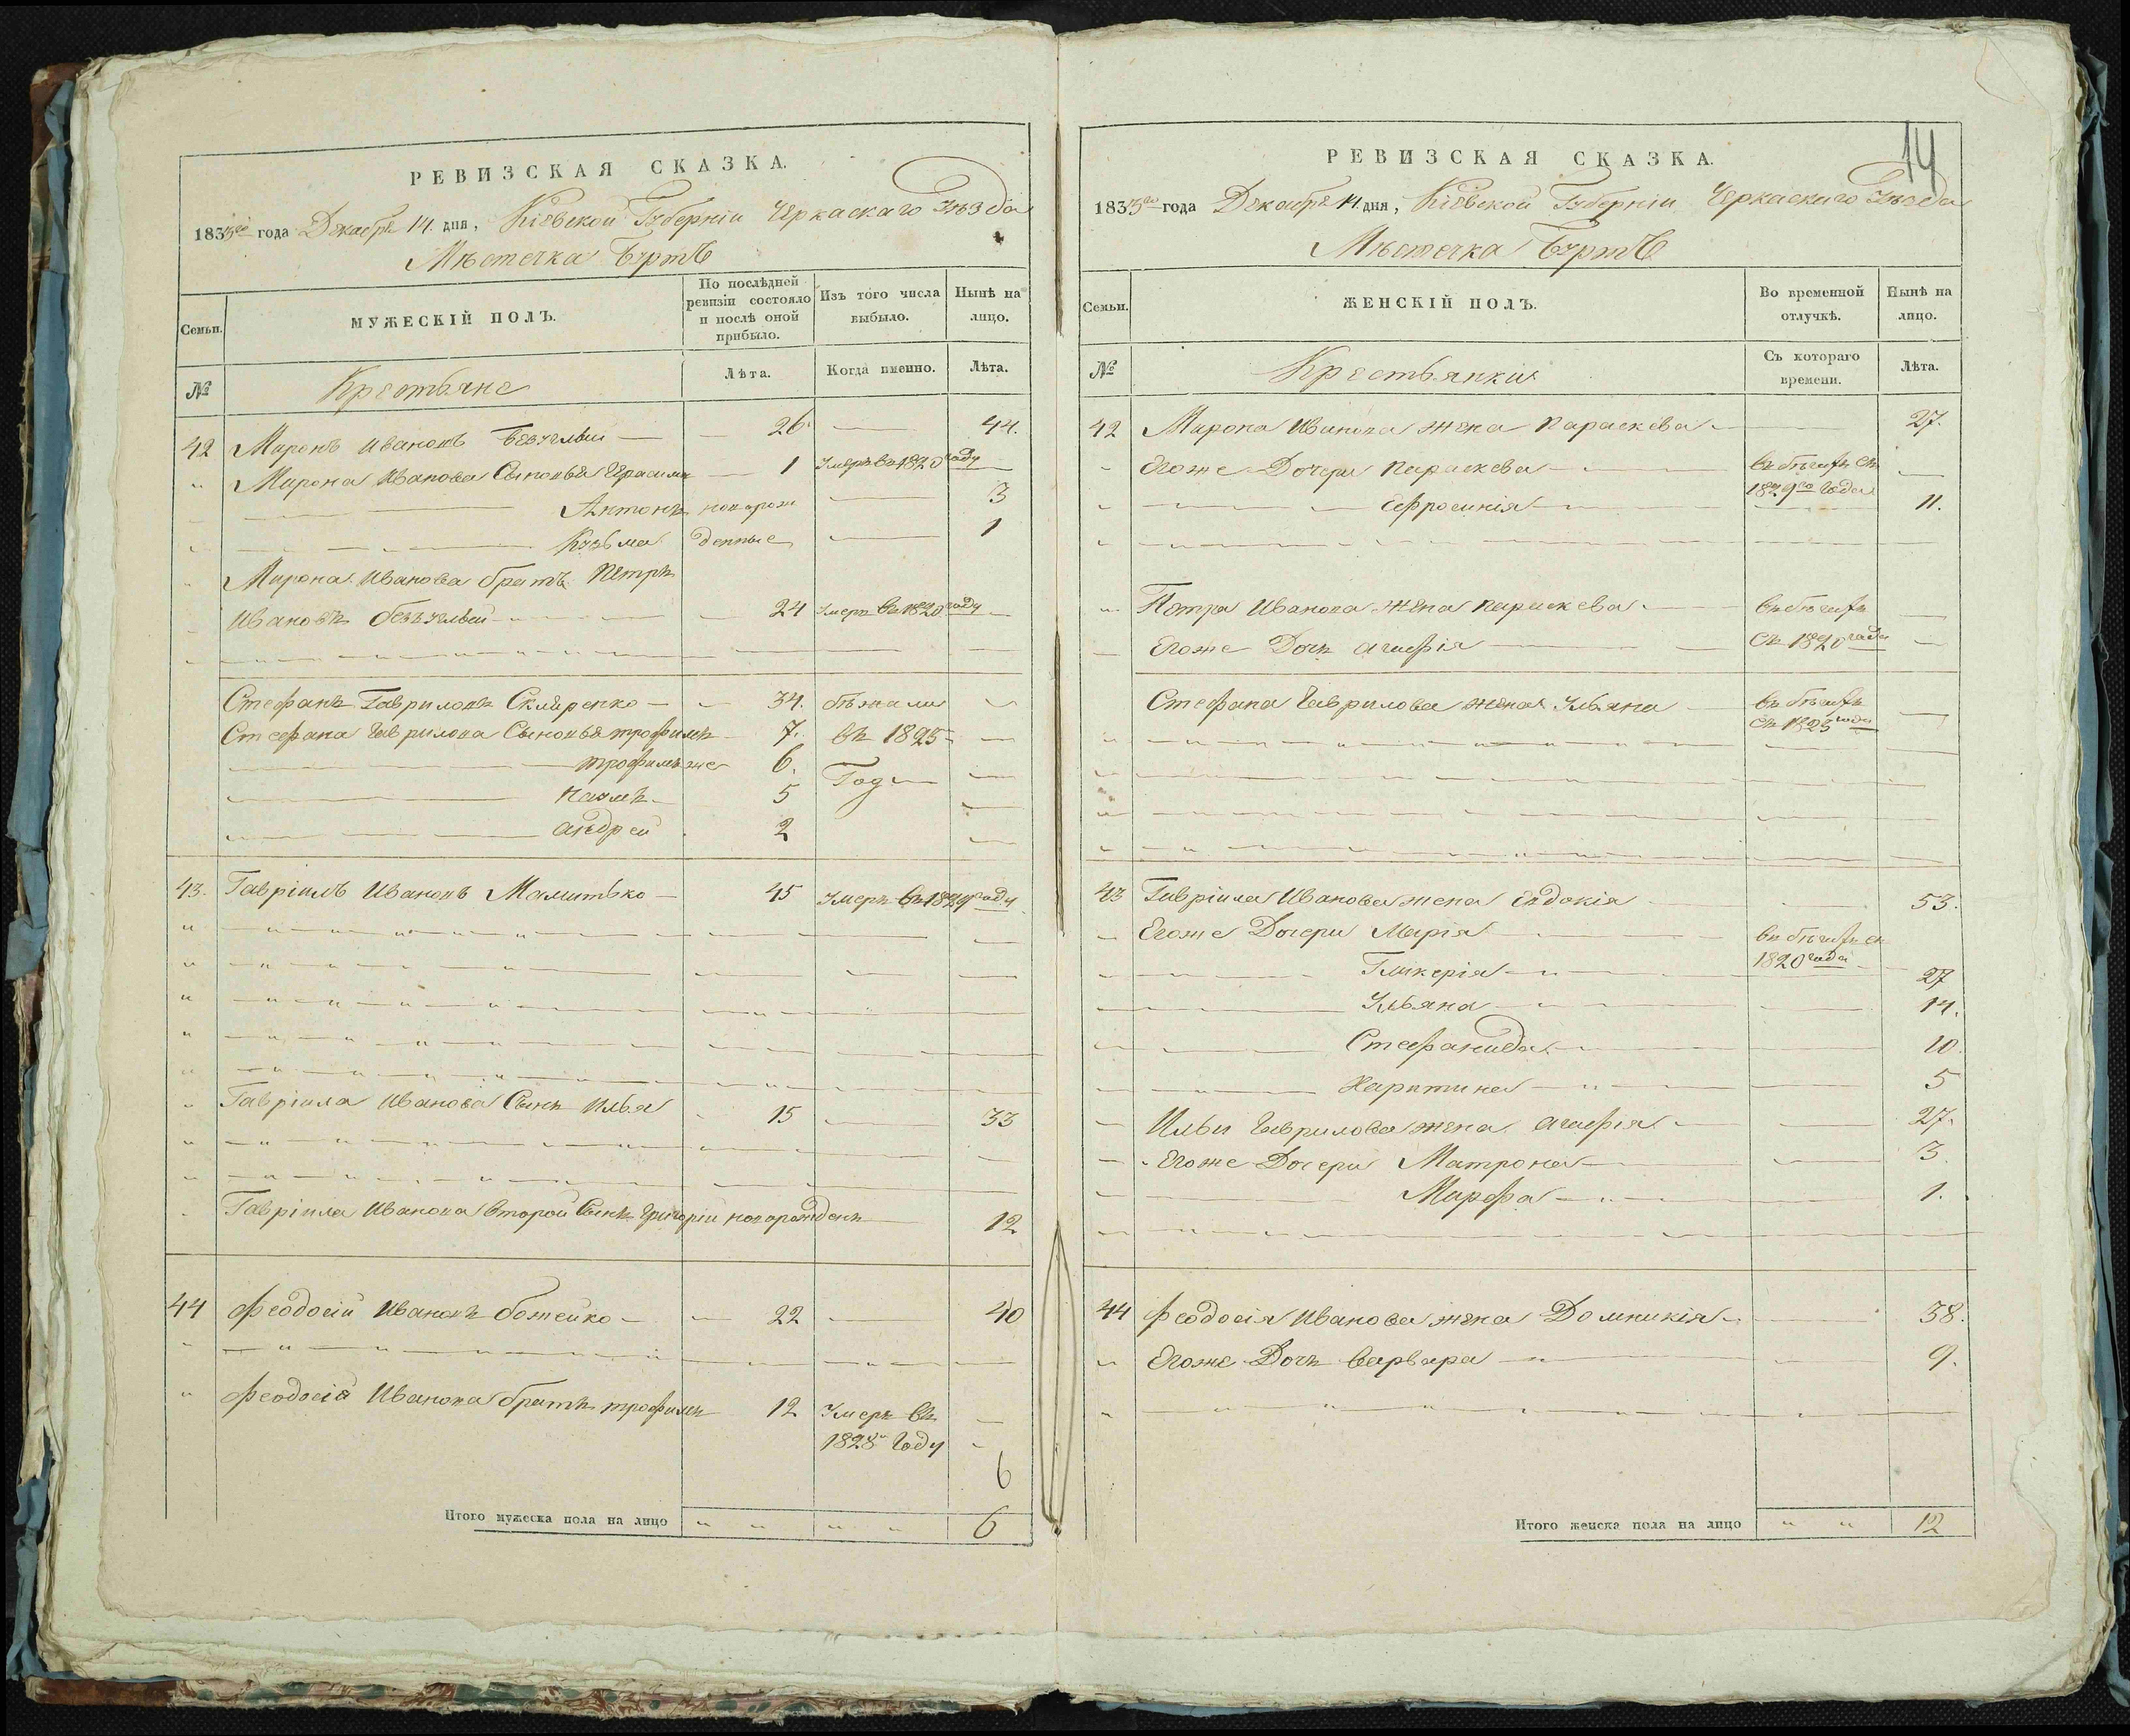 РЕВИЗСКАЯ СКАЗКА.
1833го года Декабря 14. дня, Кіевской Губерніи Черкаскаго Уѣзда
Мѣстечка Буртъ
Семьи.
МУЖЕСКІЙ ПОЛЪ.
По послѣдней ревизіи состояло и послѣ оной прибыло.
Изъ того числа выбыло.
Нынѣ на лицо.
№
Крестьяне
Лѣта.
Когда именно.
Лѣта.
42 Миронъ Ивановъ — 26. — 44.
Мирона Иванова Сыновья Герасимъ — 1 Умеръ въ 1820 году
Антонъ новорож — 3
Кузьма денные — 1
Мирона Иванова братъ Петръ
Ивановъ — 24 Умеръ въ 1820 году
Стефанъ Гавриловъ Скляренко — 34. бѣжали
Стефана Гаврилова Сыновья трофимъ — 7. въ 1825
трофимъ же 6. Году
павелъ 5
андрей 2
43. Гавріилъ Ивановъ — 45 Умеръ въ 1829 году
Гавріила Иванова Сынъ Илья 15 — 33
Гавріила Иванова второй Сынъ Григорій новорожденъ — 12
44 Феодосій Ивановъ божейко — 22 — 40
Феодосія Иванова братъ трофимъ 12 Умеръ въ
1828 Году
6
Итого мужеска пола на лицо 6
14
РЕВИЗСКАЯ СКАЗКА.
1833го года Декабря 14 дня, Кіевской Губерніи Черкаскаго Уѣзда
Мѣстечка Буртъ
Семьи.
ЖЕНСКІЙ ПОЛЪ.
Во временной отлучкѣ.
Нынѣ на лицо.
№
Крестьянки
Съ котораго времени.
Лѣта.
42 Мирона Иванова жена параскева — 27.
Егоже Дочери параскева — въ бѣгахъ съ
1829го Года
Ефросинія — 11.
Петра Иванова жена параскева — въ бѣгахъ
Егоже Дочь агафія — съ 1820 года
Стефана Гаврилова жена Ульяна — въ бѣгахъ
съ 1825 года
43 Гавріила Иванова жена евдокія — 53.
Егоже Дочери Марія — въ бѣгахъ съ
1820 года
Гликерія — 27
Ульяна — 14.
Стефанида — 10.
Харитина — 5
Ильи Гаврилова жена агафія — 27.
Егоже Дочери Матрона — 3.
Марфа — 1.
44 Феодосія Иванова жена Домникія — 38.
Егоже Дочь варвара — 9.
Итого женска пола на лицо 12